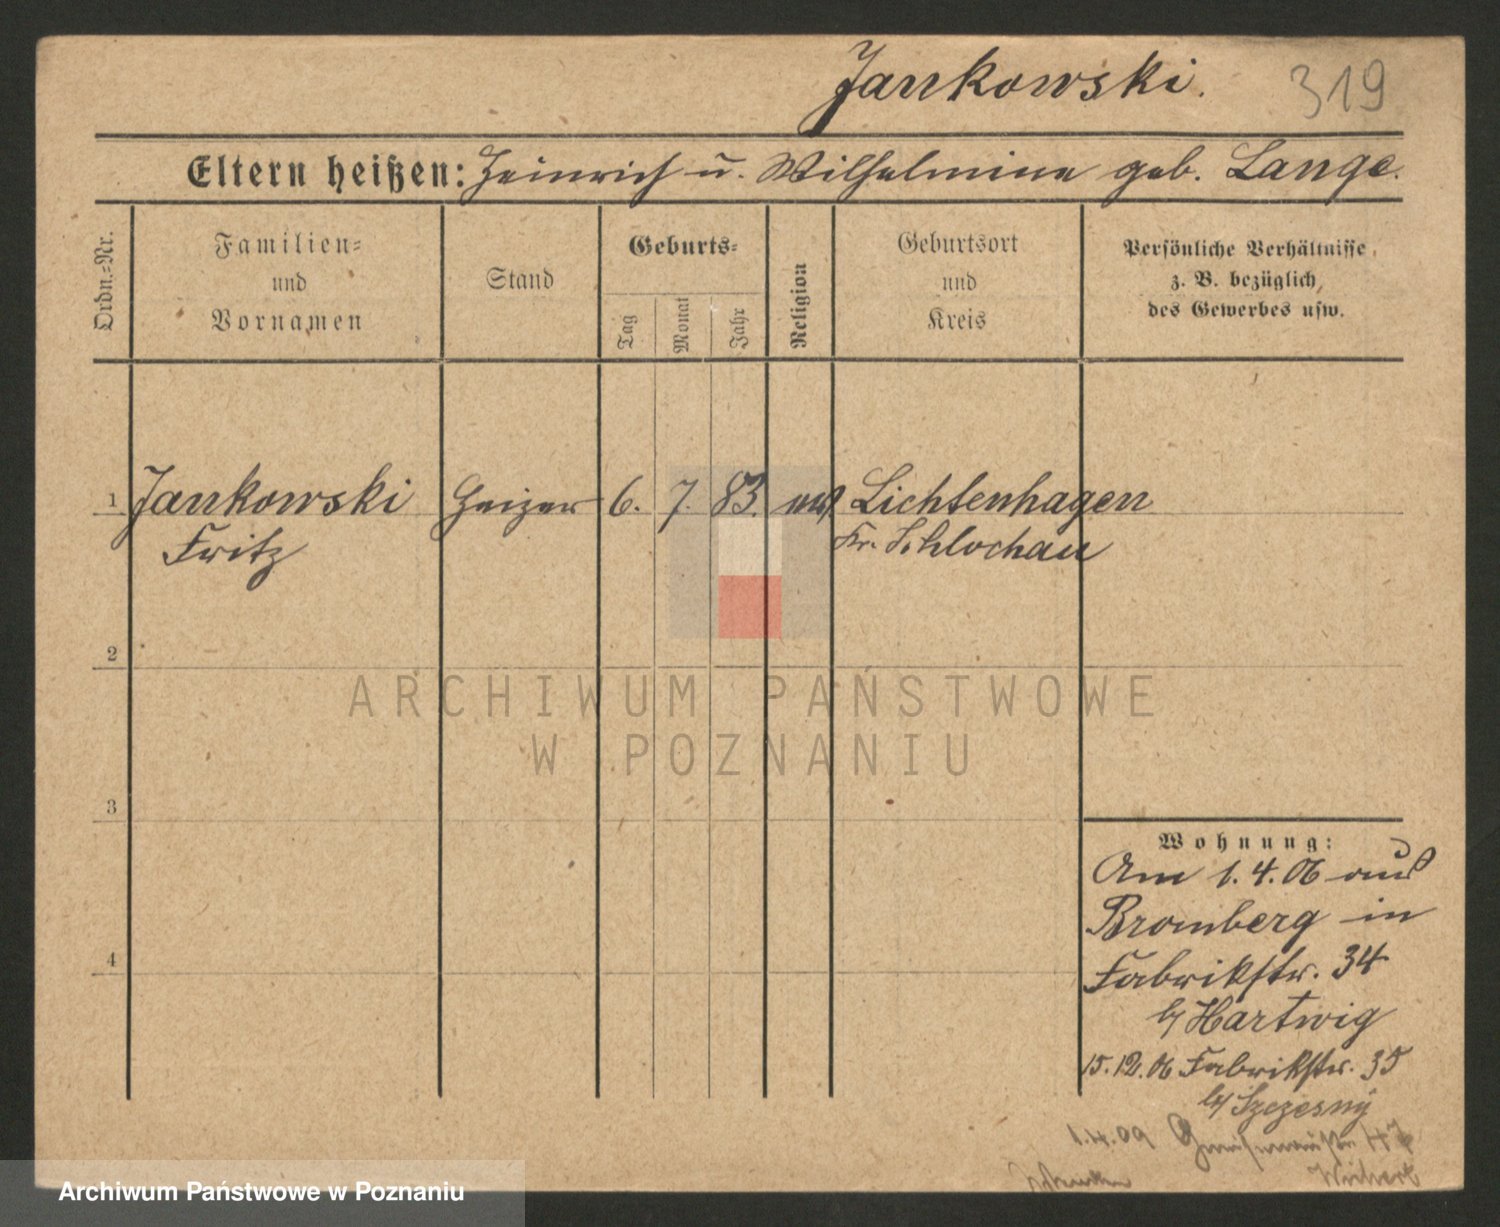 Jankowski. 319
Eltern heißen: Heinrich u. Wilhelmine geb. Lange.
Ordn.=Nr.
Familien=
und
Vornamen
Stand
Geburts=
Tag
Monat
Jahr
Religion
Geburtsort
und
Kreis
Persönliche Verhältnisse
z. B. bezüglich
des Gewerbes usw.
1 Jankowski Heizer 6. 7. 83. Lichtenhagen
Fritz Kr. Schlochau
2
ARCHIWUM PAŃSTWOWE
W POZNANIU
3
4
Wohnung:
Am 1.4.06 aus
Bromberg in
Fabrikstr. 34
b/ Hartwig
15.12.06 Fabrikstr. 35
b/ Szczesny
1.4.09
Archiwum Państwowe w Poznaniu